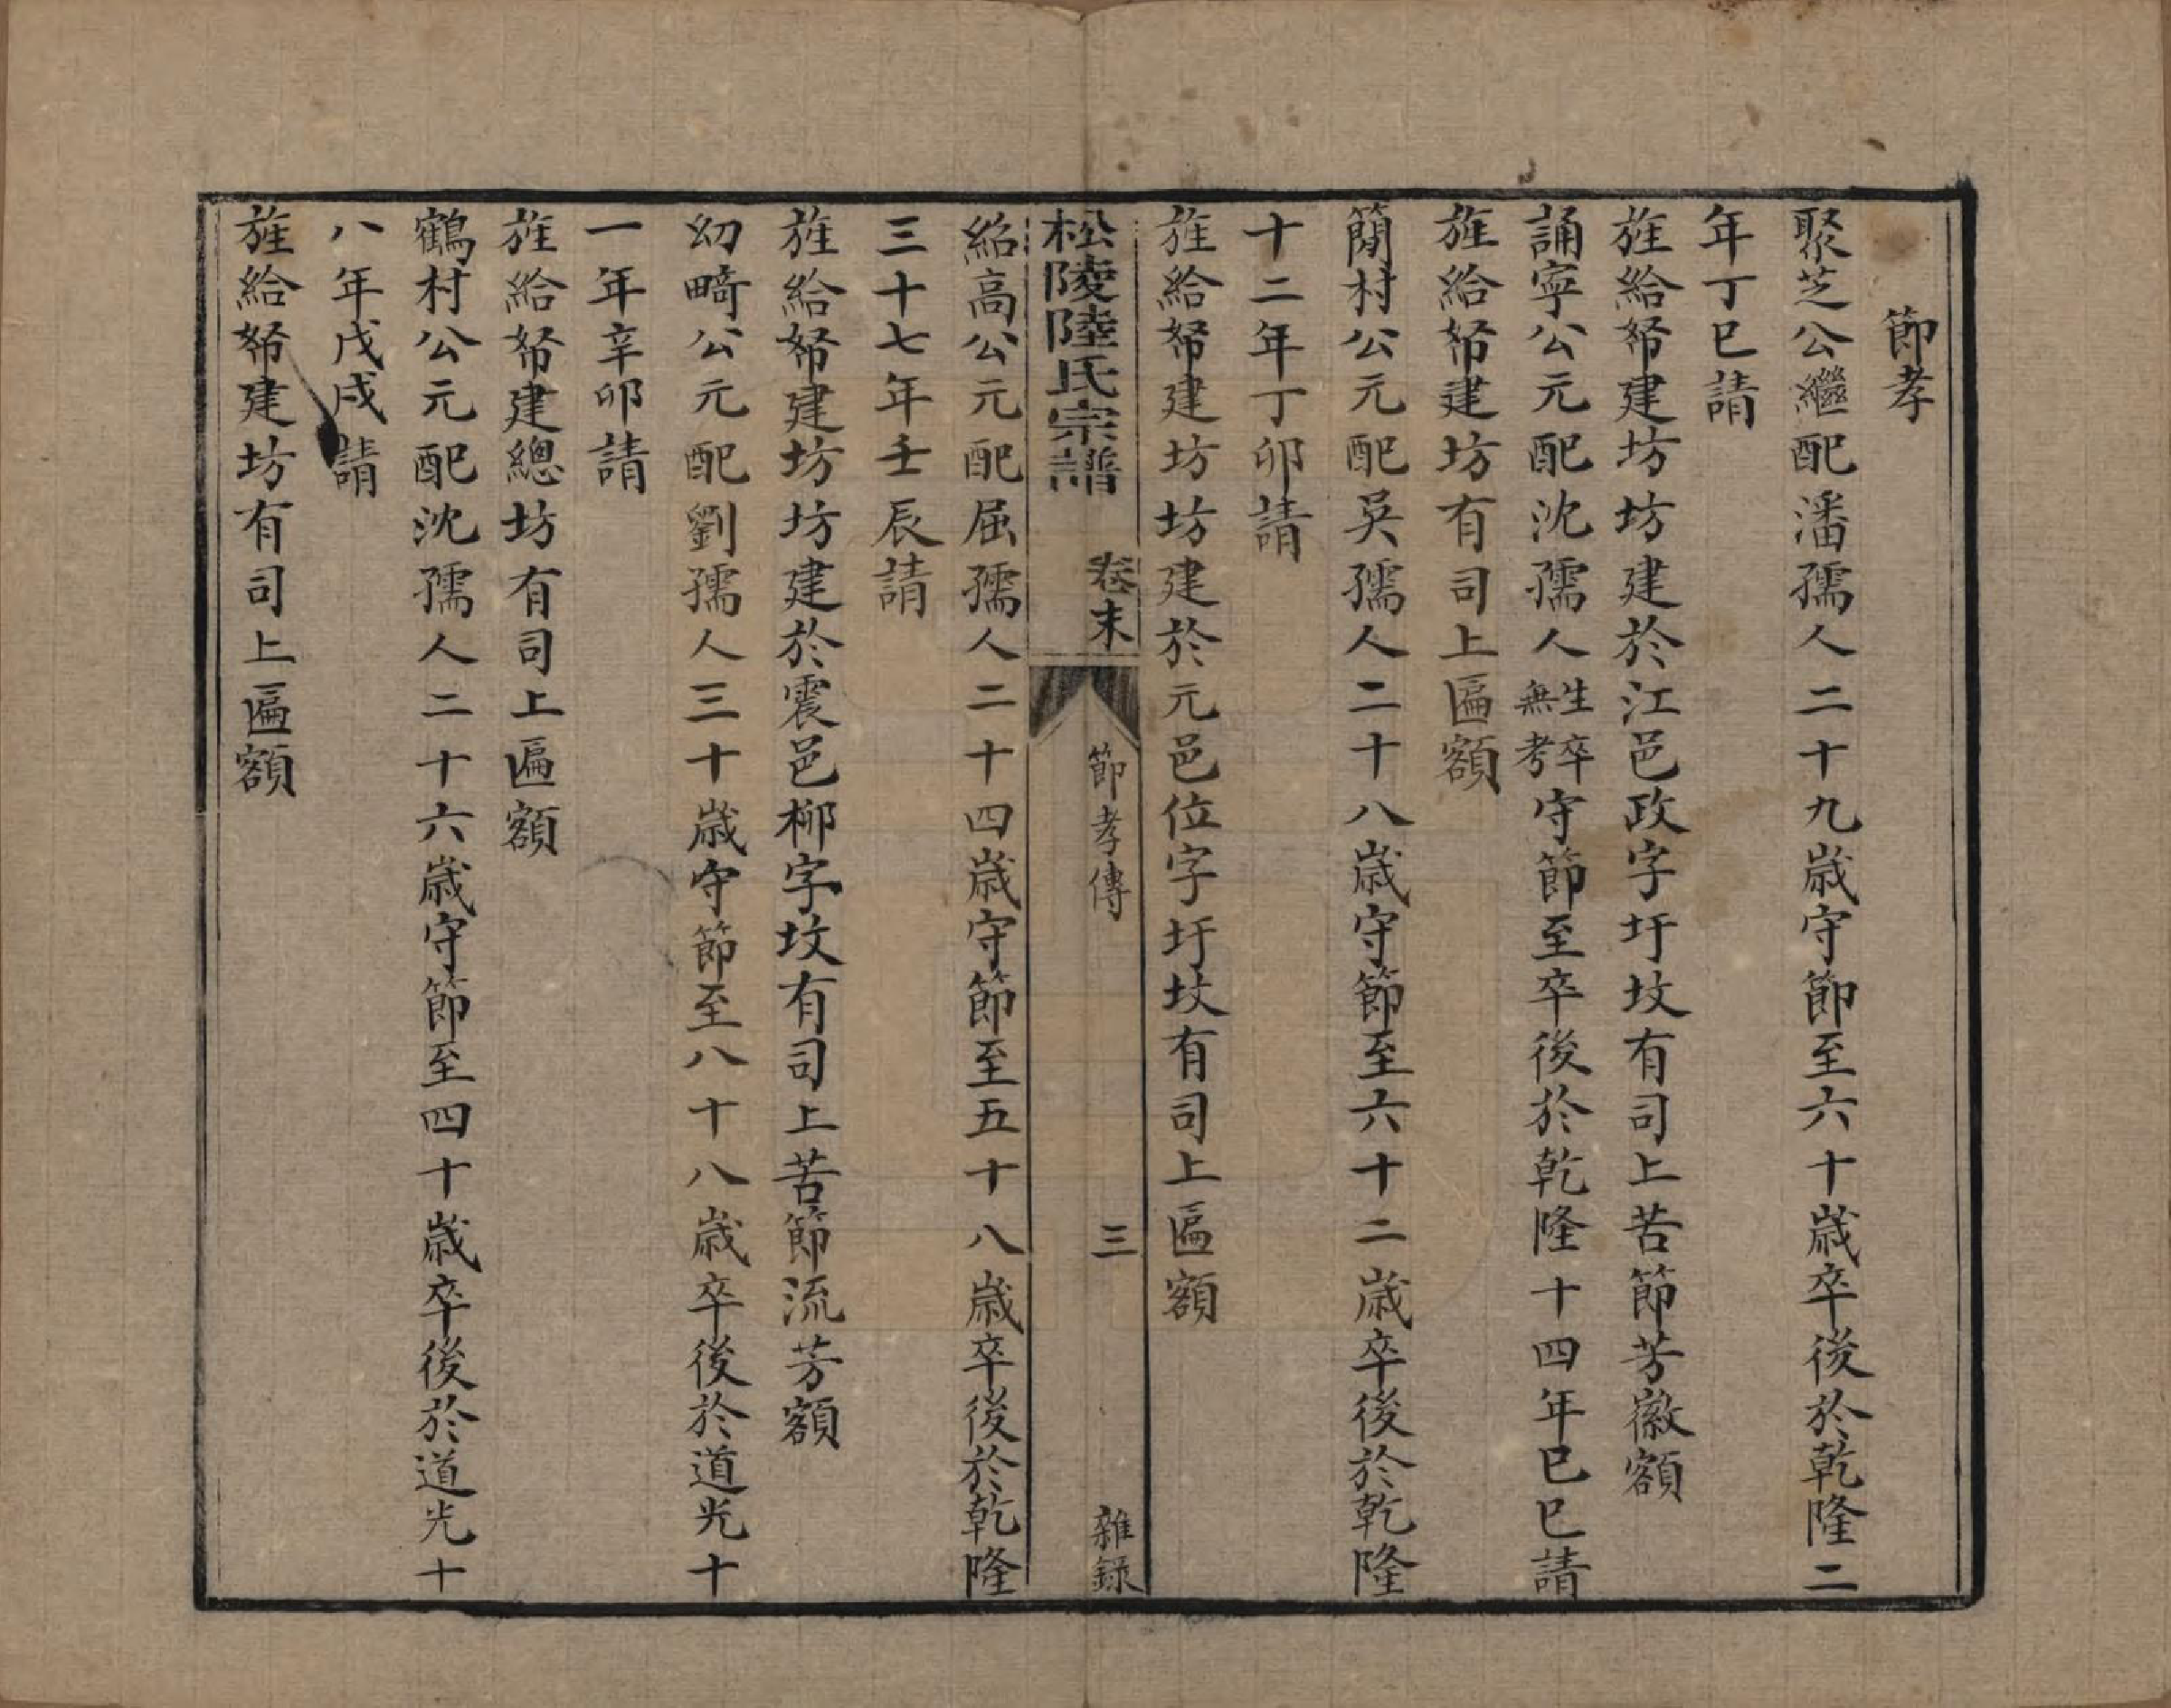 節孝
聚芝公繼配潘孺人二十九歲守節至六十歲卒後於乾隆二
年丁巳請
旌給帑建坊坊建於江邑政字圩坟有司上苦節芳徽額
誦寧公元配沈孺人生卒無考守節至卒後於乾隆十四年己巳請
旌給帑建坊有司上匾額
簡村公元配吳孺人二十八歲守節至六十二歲卒後於乾隆
十二年丁卯請
旌給帑建坊坊建於元邑位字圩坟有司上匾額
松陵陸氏宗譜 卷末 節孝傳 三 雜録
紹高公元配屈孺人二十四歲守節至五十八歲卒後於乾隆
三十七年壬辰請
旌給帑建坊坊建於震邑柳字坟有司上苦節流芳額
幼疇公元配劉孺人三十歲守節至八十八歲卒後於道光十
一年辛卯請
旌給帑建總坊有司上匾額
鶴村公元配沈孺人二十六歲守節至四十歲卒後於道光十
八年戊戌請
旌給帑建坊有司上匾額